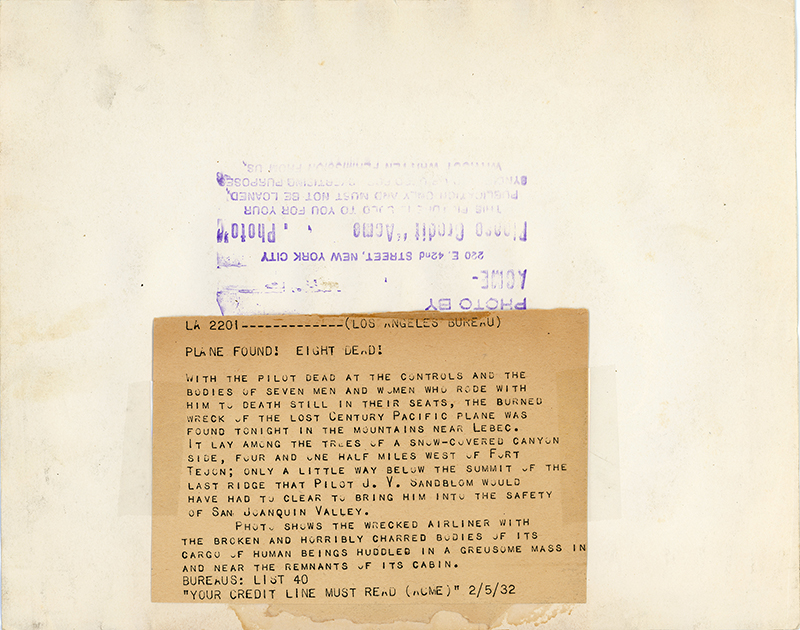 WITHOUT WRITTEN PERMISSION FROM US.
ADVERTISING PURPOSES
PUBLICATION ONLY AND MUST NOT BE LOANED,
THIS PICTURE IS SOLD TO YOU FOR YOUR
Please Credit "Acme Photo"
220 E. 42nd STREET, NEW YORK CITY
ACME-
PHOTO BY
LA 2201--------------(LOS ANGELES BUREAU)
PLANE FOUND! EIGHT DEAD!
WITH THE PILOT DEAD AT THE CONTROLS AND THE
BODIES OF SEVEN MEN AND WOMEN WHO RODE WITH
HIM TO DEATH STILL IN THEIR SEATS, THE BURNED
WRECK OF THE LOST CENTURY PACIFIC PLANE WAS
FOUND TONIGHT IN THE MOUNTAINS NEAR LEBEC.
IT LAY AMONG THE TREES OF A SNOW-COVERED CANYON
SIDE, FOUR AND ONE HALF MILES WEST OF FORT
TEJON; ONLY A LITTLE WAY BELOW THE SUMMIT OF THE
LAST RIDGE THAT PILOT J. V. SANDBLOM WOULD
HAVE HAD TO CLEAR TO BRING HIM INTO THE SAFETY
OF SAN JOANQUIN VALLEY.
PHOTO SHOWS THE WRECKED AIRLINER WITH
THE BROKEN AND HORRIBLY CHARRED BODIES OF ITS
CARGO OF HUMAN BEINGS HUDDLED IN A GREUSOME MASS IN
AND NEAR THE REMNANTS OF ITS CABIN.
BUREAUS: LIST 40
"YOUR CREDIT LINE MUST READ (ACME)" 2/5/32